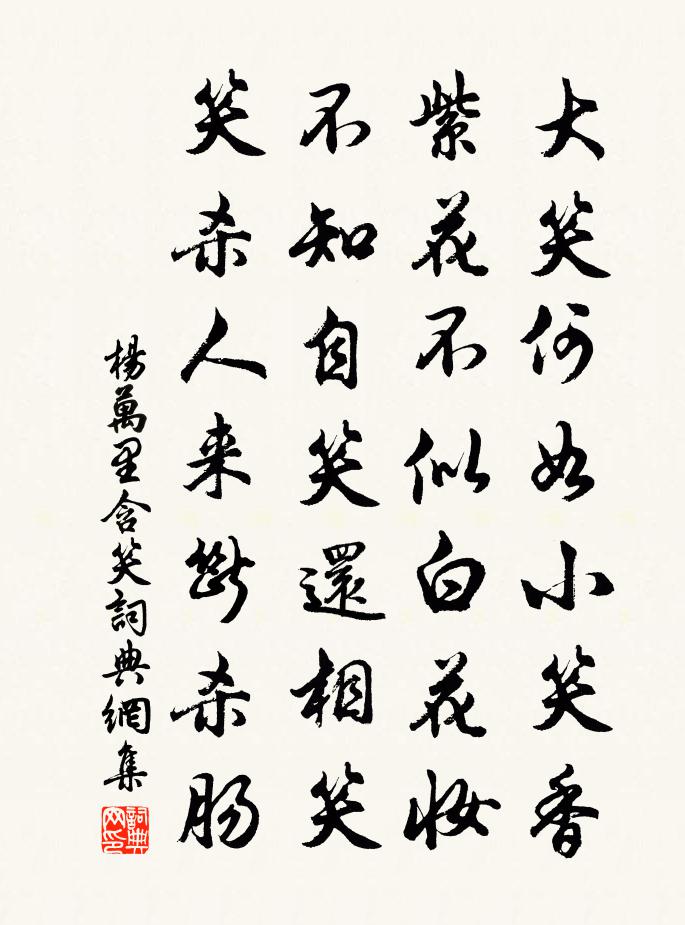 大笑何如小笑香
紫花不似白花妆
不知自笑還相笑
笑杀人来斷杀肠
楊萬里含笑詞典網集
詞典网印